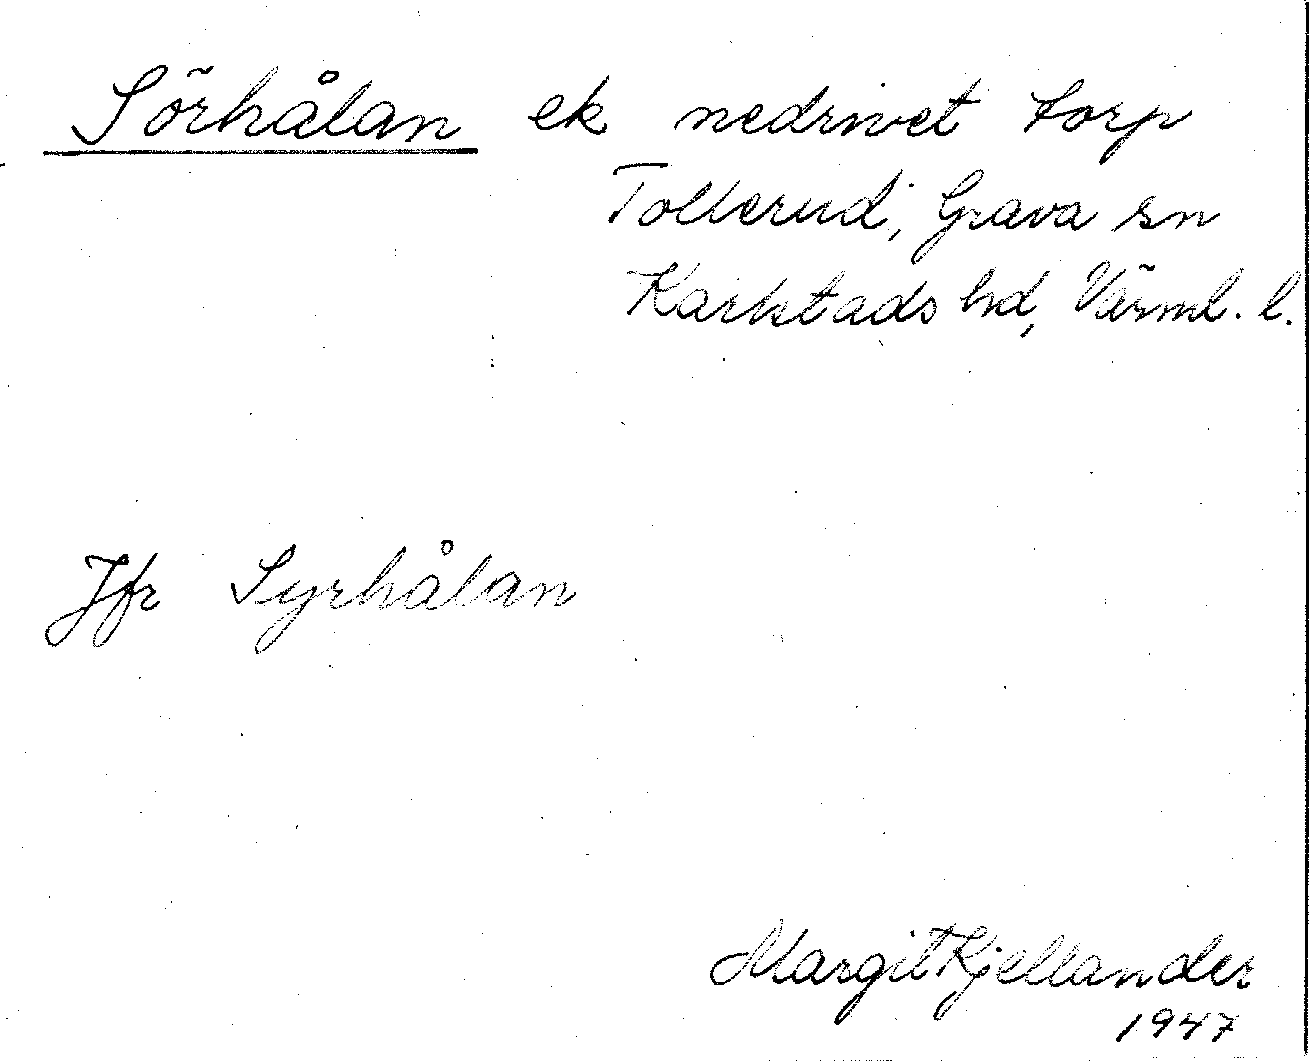 Sörhålan ek nedrivet torp
Tollerud, Grava sn
Karlstads hd, Värml. l.
Jfr Syrhålan
Margit Kjellander
1947